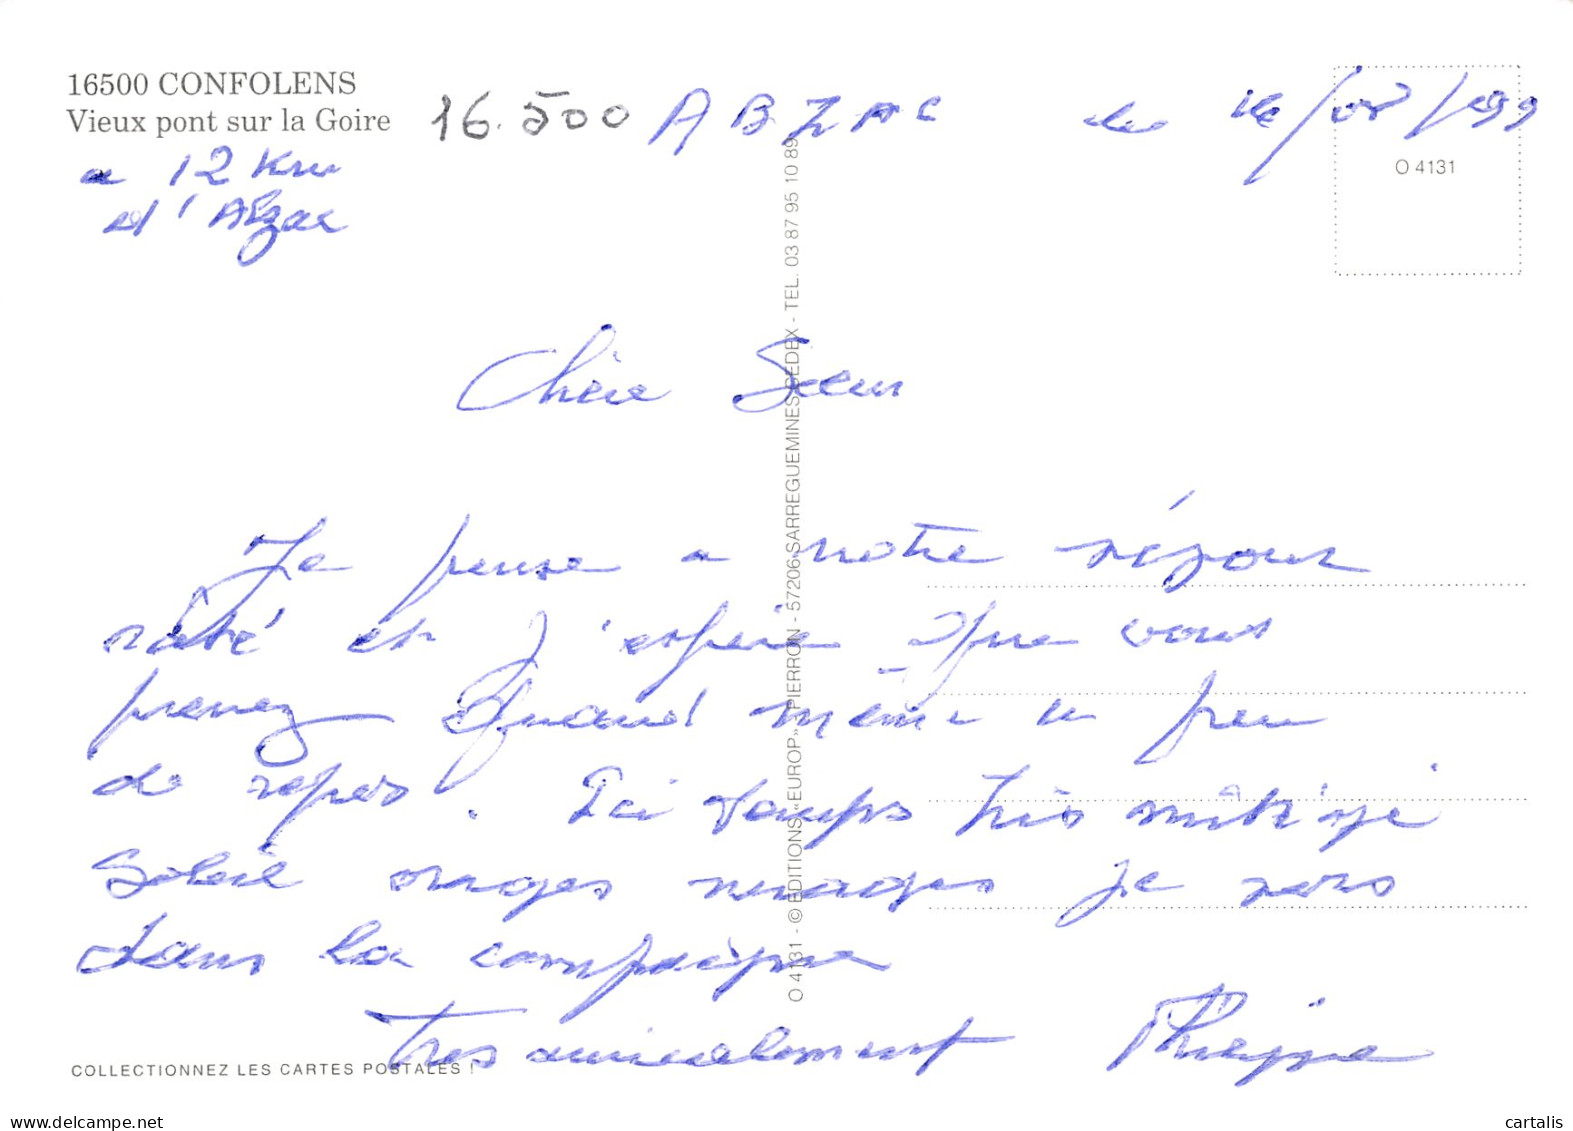 16500 CONFOLENS
Vieux pont sur la Goire
16.500 ABZAC le 16/08/1999
a 12 Km
d'Abzac
O 4131
Chère Sœur
Je pense a notre séjour
raté et j'espère que vous
prenez quand même un peu
de repos. Ici temps très mitigé
Soleil orages nuages je sors
dans la campagne
Très amicalement Philippe
O 4131 - © EDITIONS «EUROP» PIERRON - 57206 SARREGUEMINES CEDEX - TEL. 03 87 95 10 89
COLLECTIONNEZ LES CARTES POSTALES !
www.delcampe.net
cartalis